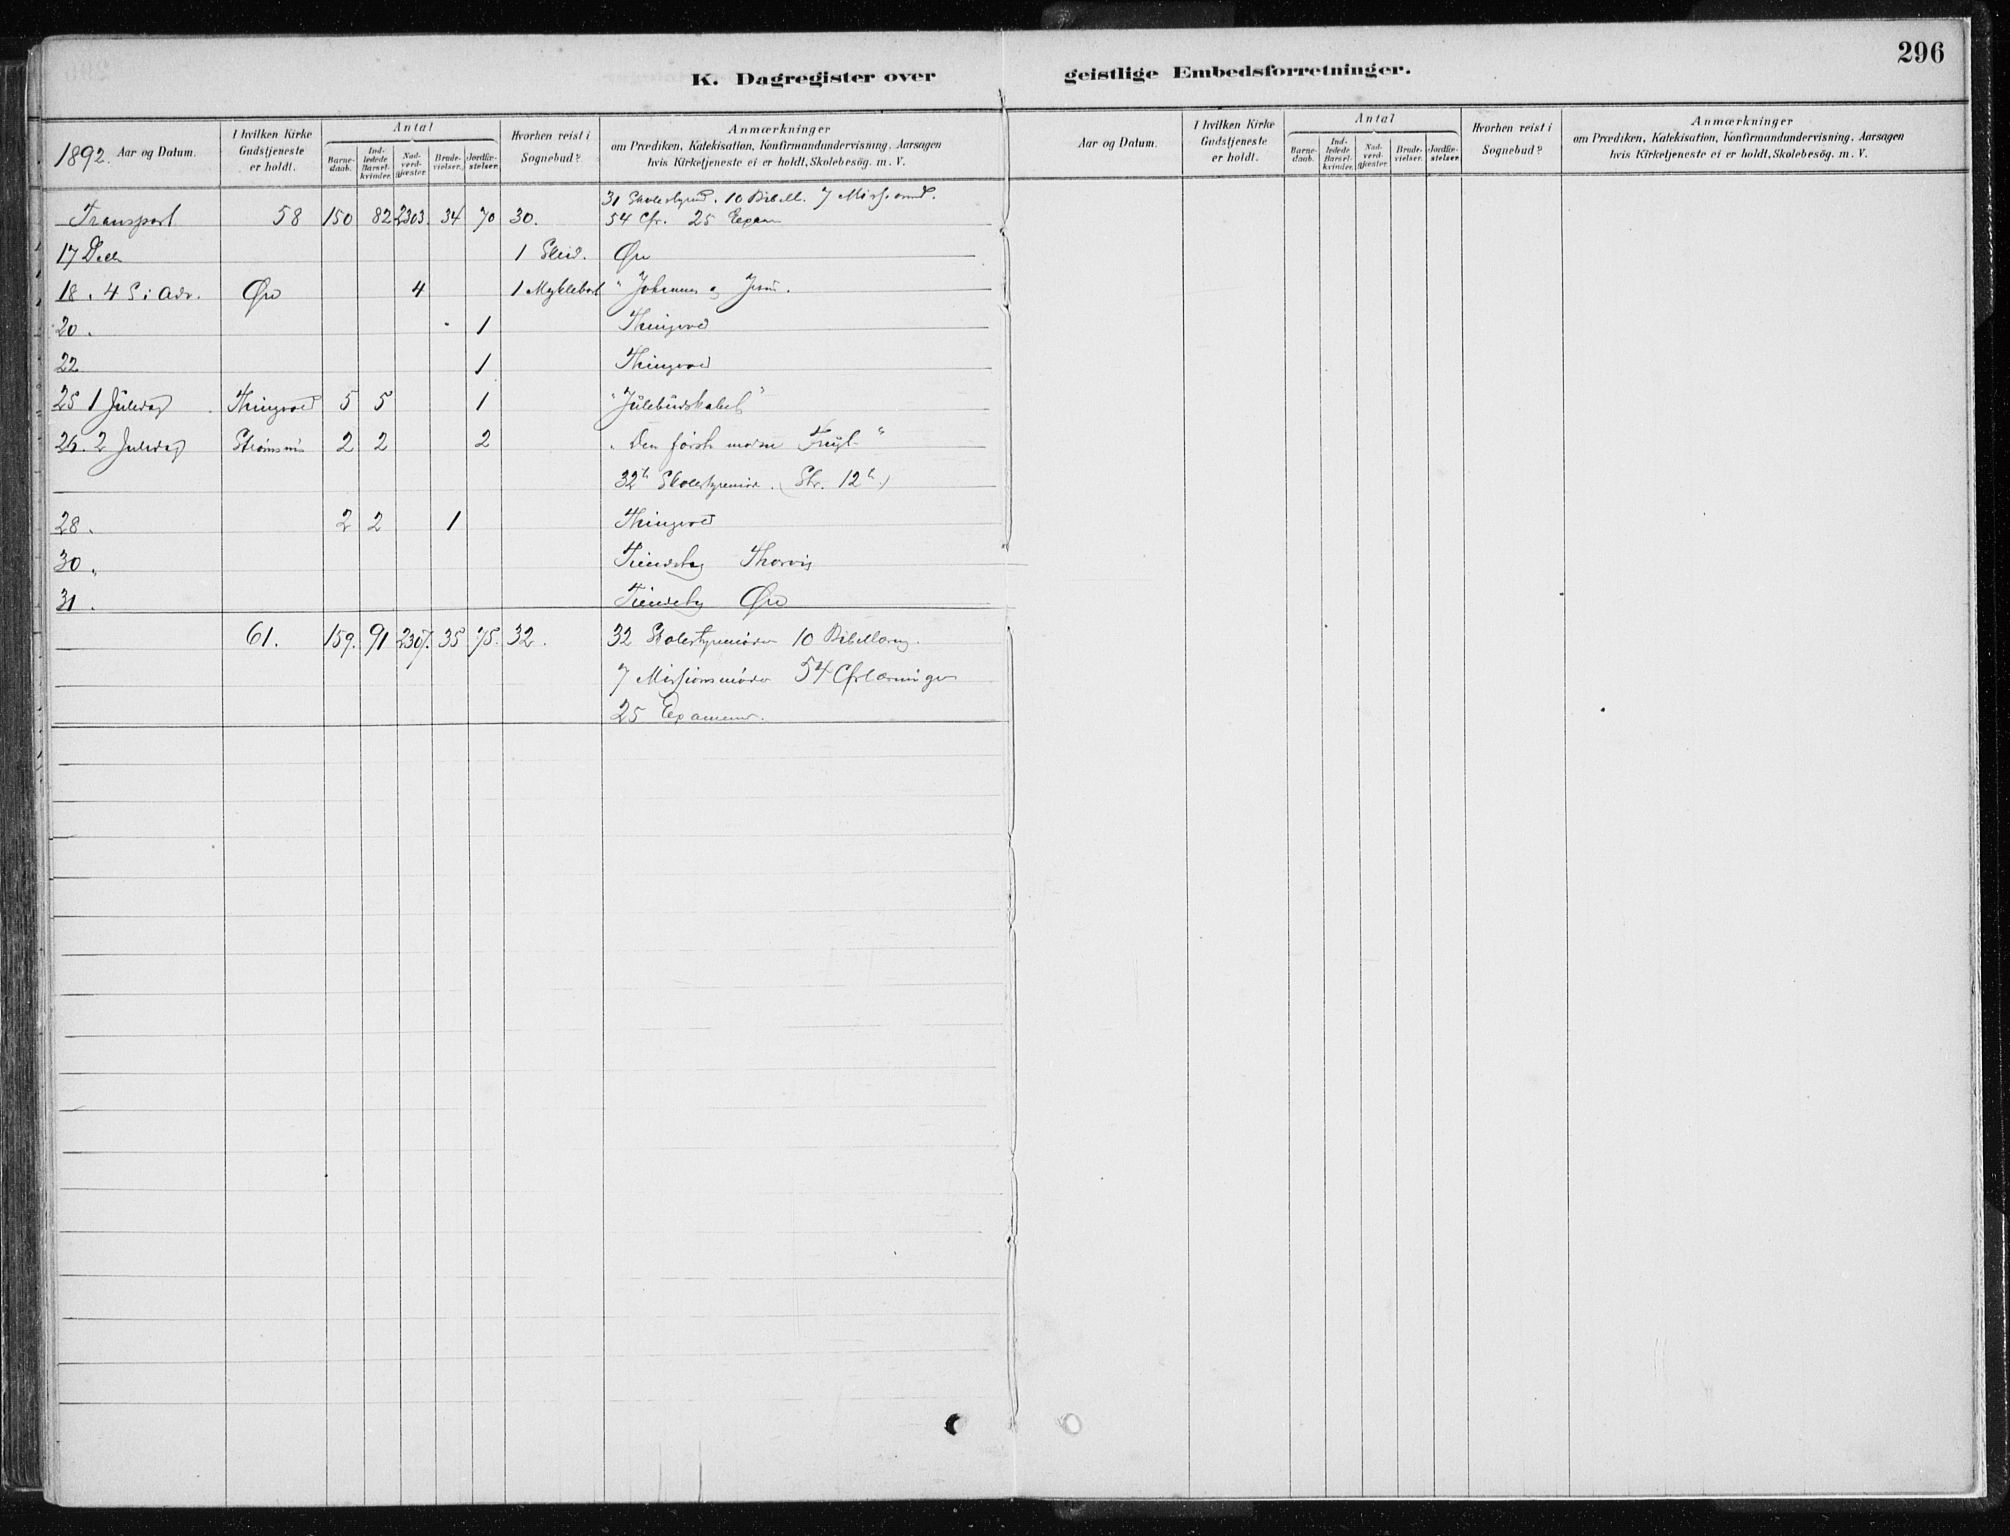 296
K. Dagregister over geistlige Embedsforretninger.
1892. Aar og Datum. I hvilken Kirke Gudstjeneste er holdt. Antal Barnedaab. Indledede Barselkvinder. Nadverdgjæster. Brudevielser. Jordfæstelser. Hvorhen reist i Sognebud? Anmærkninger om Prædiken, Katekisation, Konfirmandundervisning, Aarsagen hvis Kirketjeneste ei er holdt, Skolebesög. m. V.
Aar og Datum. I hvilken Kirke Gudstjeneste er holdt. Antal Barnedaab. Indledede Barselkvinder. Nadverdgjæster. Brudevielser. Jordfæstelser. Hvorhen reist i Sognebud? Anmærkninger om Prædiken, Katekisation, Konfirmandundervisning, Aarsagen hvis Kirketjeneste ei er holdt, Skolebesög. m. V.
31 10 Bibell. 7
Transport 58 150 82 2303. 34 70 30. 54 Cfr. 25 Exam
17 Decb 1 Øre
18. 4 S i Adv. Øre 4 1 Myklebost "Johannes og
20. 1 Thingvold
22 1 Thingvold
25 1 Juledag Thingvold 5 5 1 "Julebudskabet"
26. 2 Juledag Strømsnæs 2 2 2 "Den første "
32te Skolestyremøde. (Str. 12te)
28. 2 2 1 Thingvold
30. Thorvig
31. Øre
61. 159. 91 2307. 35 75. 32. 32 Skolestyremøder 10 Bibellæsng.
7 Missionsmøder 54 Cfrlæsninger
25 Examener.